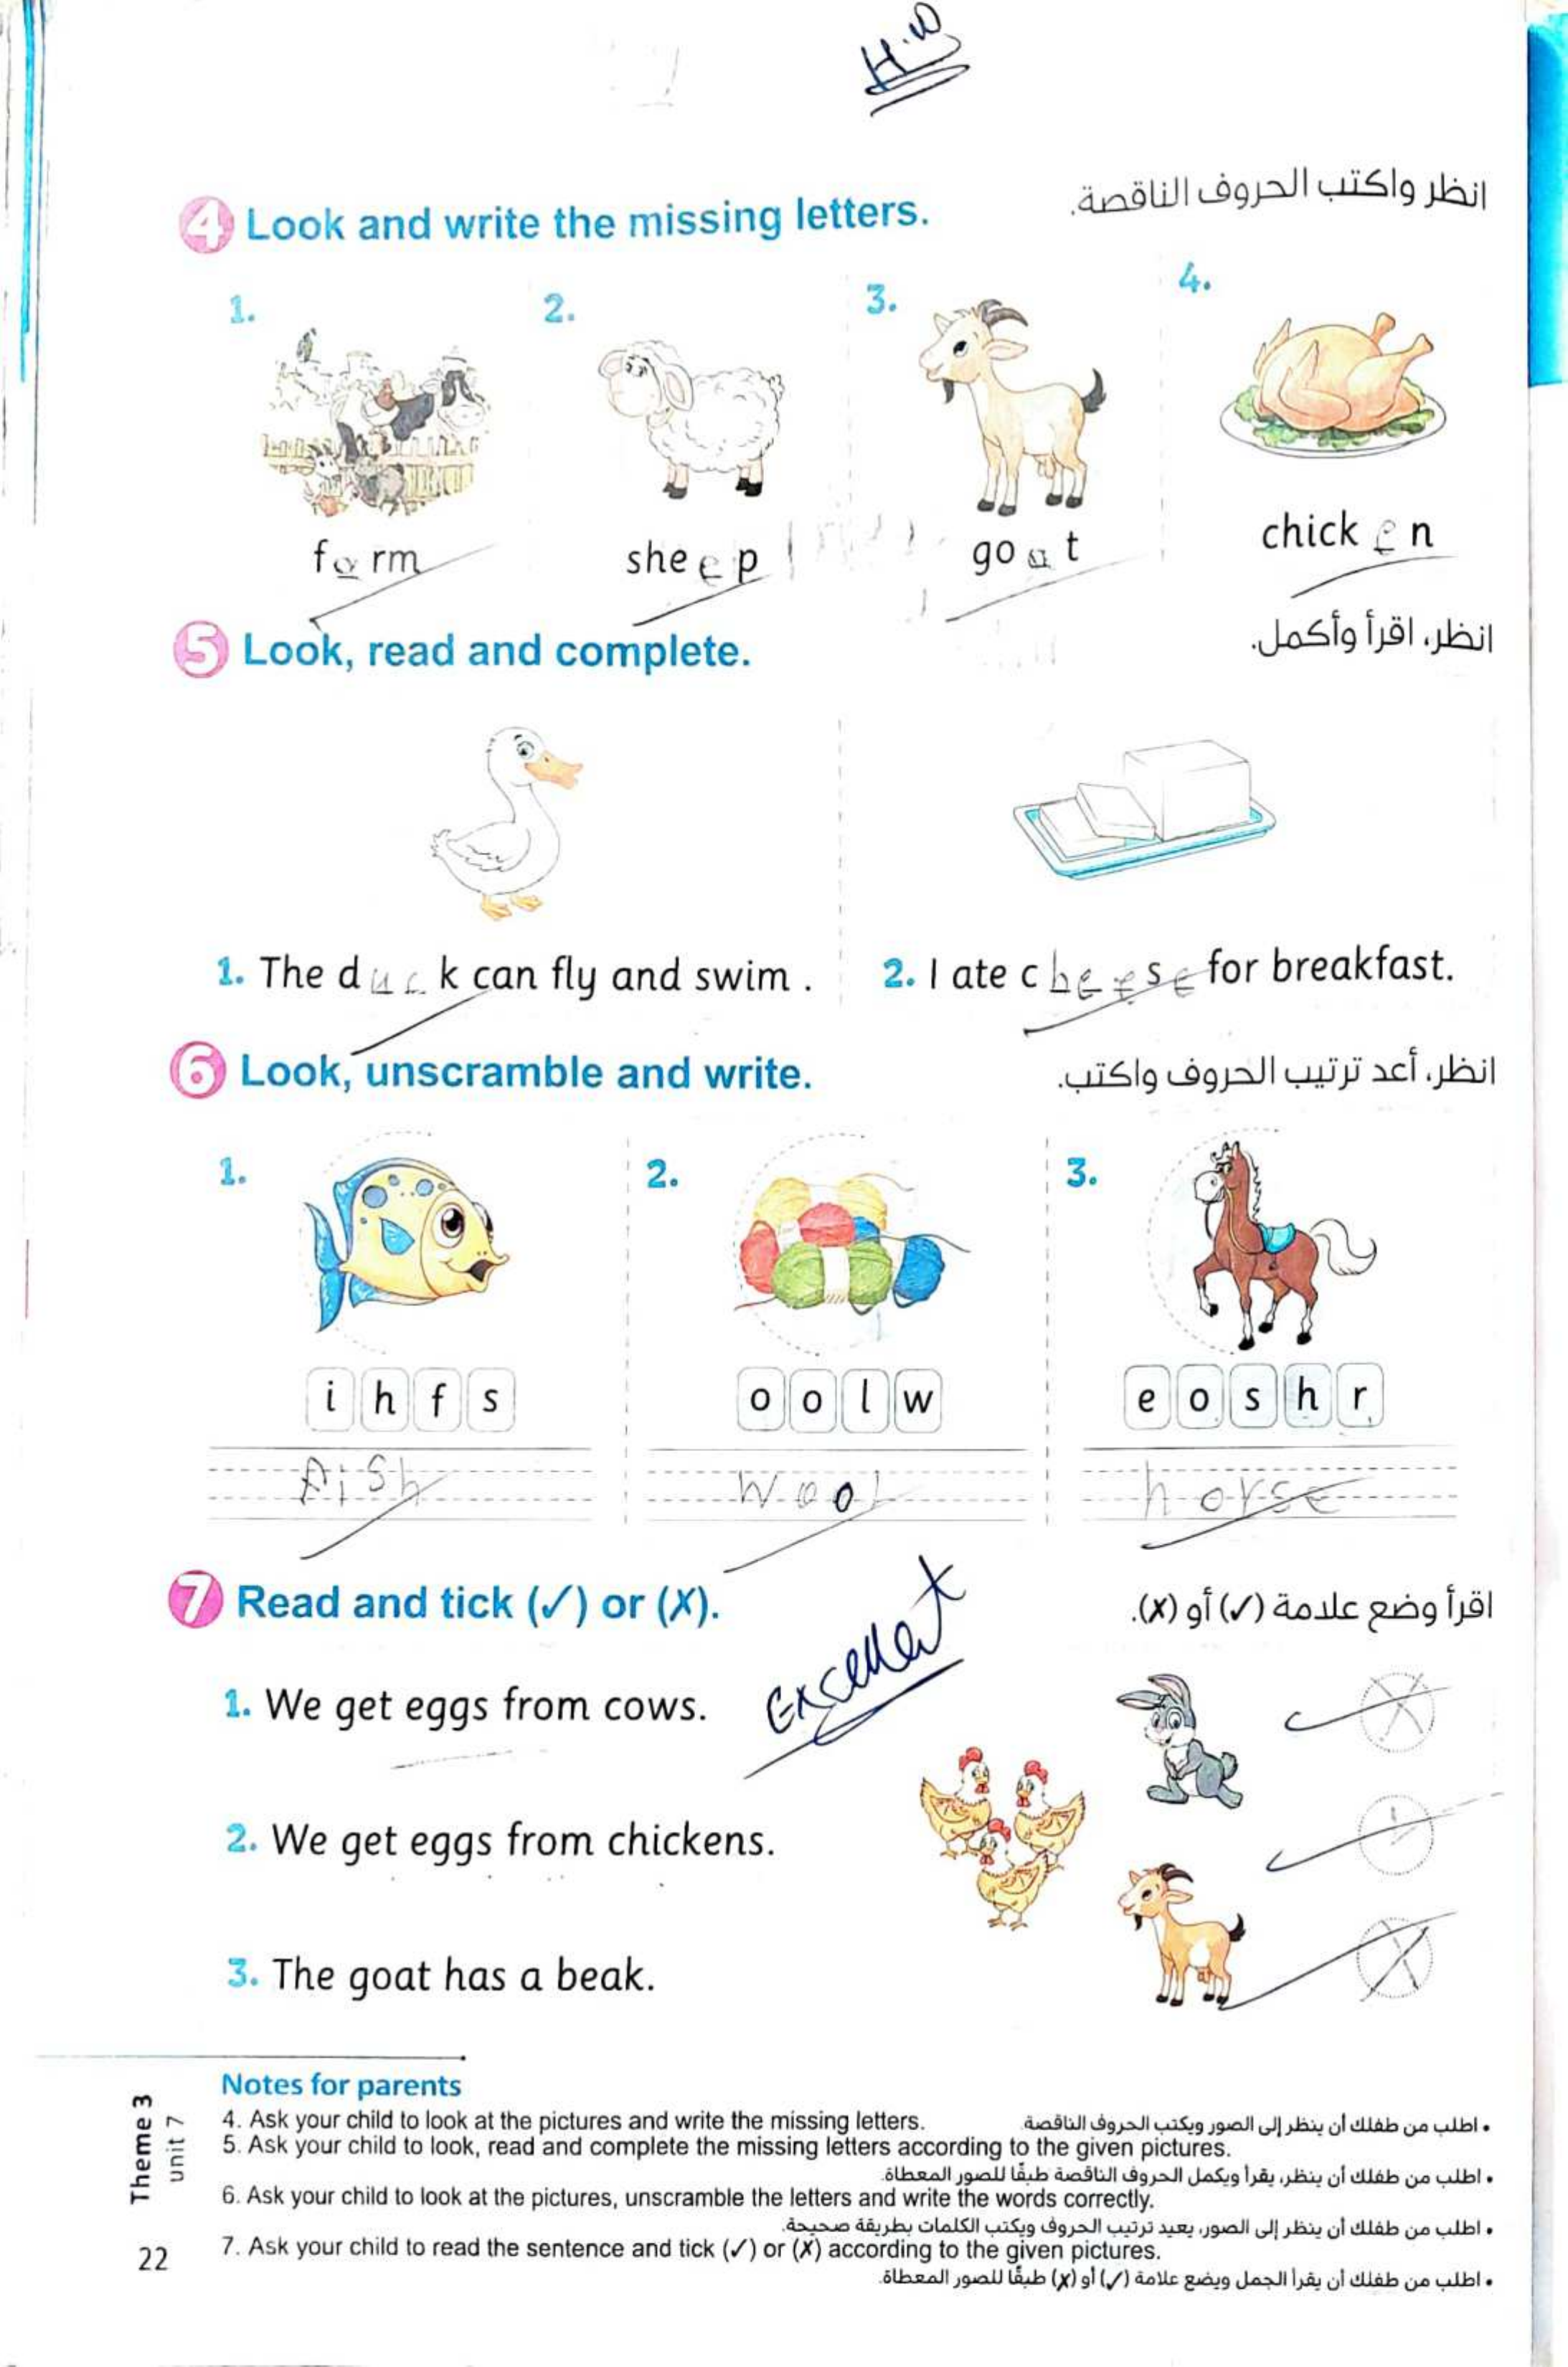 H.W
4 Look and write the missing letters. انظر واكتب الحروف الناقصة.
1. 2. 3. 4.
farm sheep goat chicken
5 Look, read and complete. انظر، اقرأ وأكمل.
1. The duck can fly and swim . 2. I ate cheese for breakfast.
6 Look, unscramble and write. انظر، أعد ترتيب الحروف واكتب.
1. 2. 3.
i h f s o o l w e o s h r
fish wool horse
7 Read and tick (✓) or (X). اقرأ وضع علامة (✓) أو (X).
Excellent
1. We get eggs from cows. X
2. We get eggs from chickens. ✓
3. The goat has a beak. X
Notes for parents
4. Ask your child to look at the pictures and write the missing letters. • اطلب من طفلك أن ينظر إلى الصور ويكتب الحروف الناقصة.
5. Ask your child to look, read and complete the missing letters according to the given pictures.
• اطلب من طفلك أن ينظر، يقرأ ويكمل الحروف الناقصة طبقًا للصور المعطاة.
6. Ask your child to look at the pictures, unscramble the letters and write the words correctly.
• اطلب من طفلك أن ينظر إلى الصور، يعيد ترتيب الحروف ويكتب الكلمات بطريقة صحيحة.
7. Ask your child to read the sentence and tick (✓) or (X) according to the given pictures.
• اطلب من طفلك أن يقرأ الجمل ويضع علامة (✓) أو (X) طبقًا للصور المعطاة.
Theme 3
unit 7
22